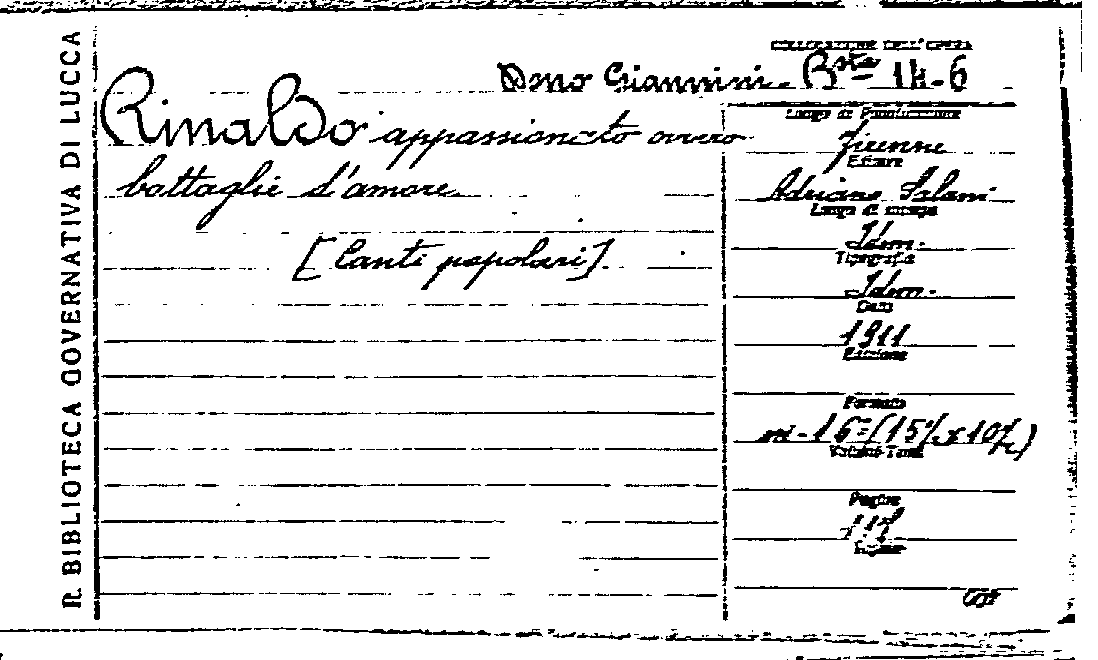 R. BIBLIOTECA GOVERNATIVA DI LUCCA
COLLOCAZIONE DELL'OPERA
Dono Giannini - Bsta 14-6
Rinaldo appassionato ovvero
battaglie d'amore
[Canti popolari]
Luogo di Pubblicazione
Firenze
Editore
Adriano Salani
Luogo di stampa
Idm.
Tipografia
Idm.
Data
1911
Edizione
Formato
in-16º (15½ x 10½)
Volumi-Tomi
Pagine